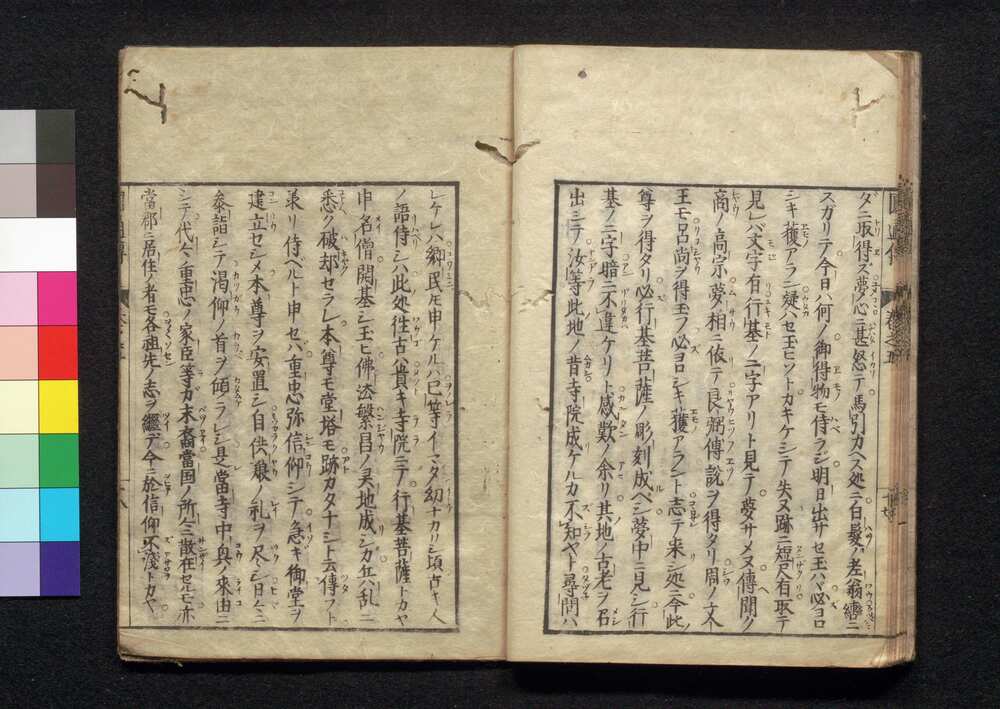 ダニ取得ズ夢心ニ甚怒テ馬引カヘス処ニ白髪ノ老翁轡ニ
スガリテ今日ハ何ノ御得物モ侍ラジ明日出サセ玉ハヾ必ヨロ
シキ獲アラン疑ハセ玉ヒソトカキケシテ失ヌ跡ニ短尺有取テ
見レバ文字有行基ノ二字アリト見テ夢サメヌ傳聞ク
高ノ高宗夢相ニ依テ良弼傳説ヲ得タリ周ノ文
王モ呂尚ヲ得玉フ必ヨロシキ獲アラント志テ来シ処ニ今此
尊ヲ得タリ必行基菩薩ノ彫刻成ベシ夢中ニ見シ行
基ノ二字暗ニ不違ケリト感歎ノ余リ其地ノ古老ヲ召
出シテ汝等此地ノ昔寺院成ケルカ不知ヤト尋問ハ
レケレハ郷民モ申ケルハ已等イマダ幼ナカリシ頃古キ人
ノ語侍シハ此処往古ハ貴キ寺院ニテ行基菩薩トカヤ
申名僧開基シ玉ヒ佛法繁昌ノ灵地成シガ兵乱ニ
悉ク破却セラレ本尊モ堂塔モ跡カタナシト云傳フト
承リ侍ヘルト申セバ重忠弥信仰シテ急キ御堂ヲ
建立セシメ本尊ヲ安置シ自供粮ノ礼ヲ尽シ日々ニ
参詣シテ渇仰ノ首ヲ傾ラレシ是當寺中興ノ来由ニ
シテ代々ノ重忠ノ家臣等カ末裔當国ノ所々ニ散在セルモ亦
當郡ニ居住ノ者モ各祖先ノ志ヲ継デ今ニ於信仰不浅トカヤ